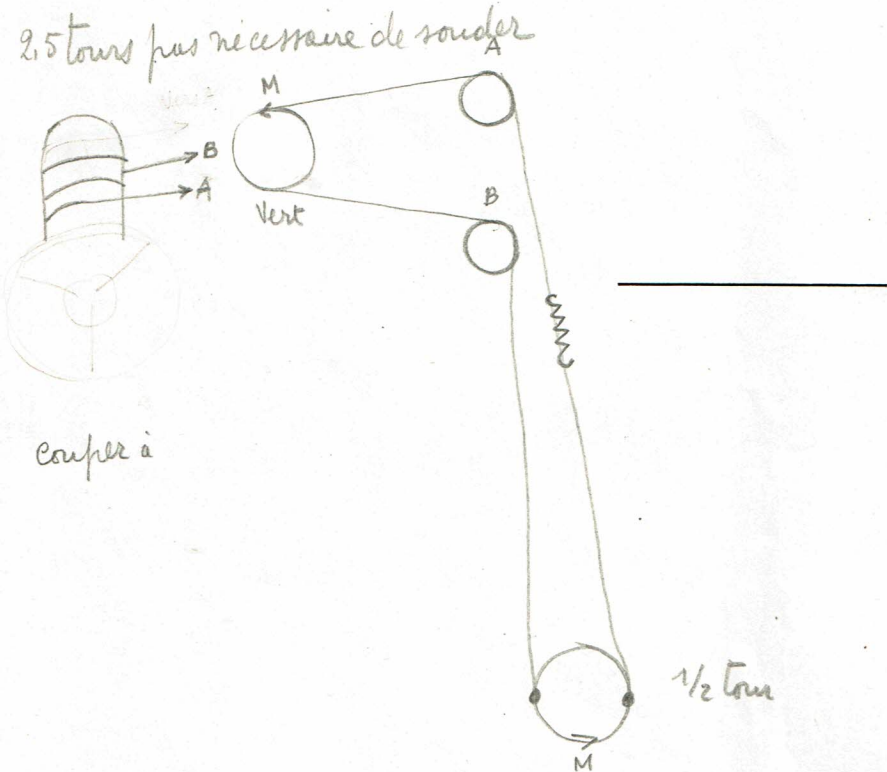 2,5 tours pas nécessaire de souder
A
M
B
A
B
Vert
couper à
1/2 tour
M